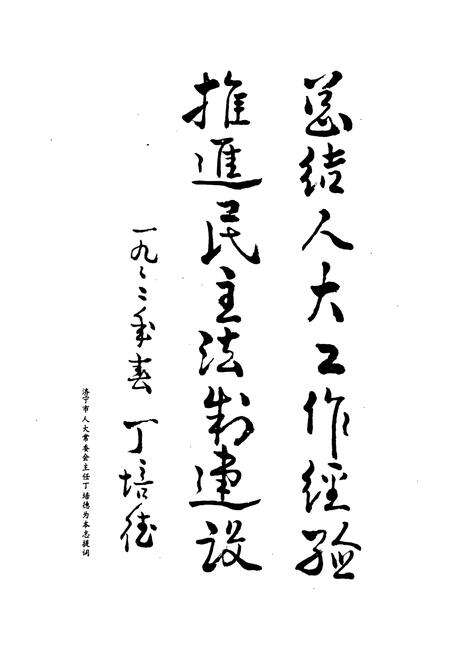 总结人大工作经验
推進民主法制建设
一九九二年春 丁培德
济宁市人大常委会主任丁培德为本志提词